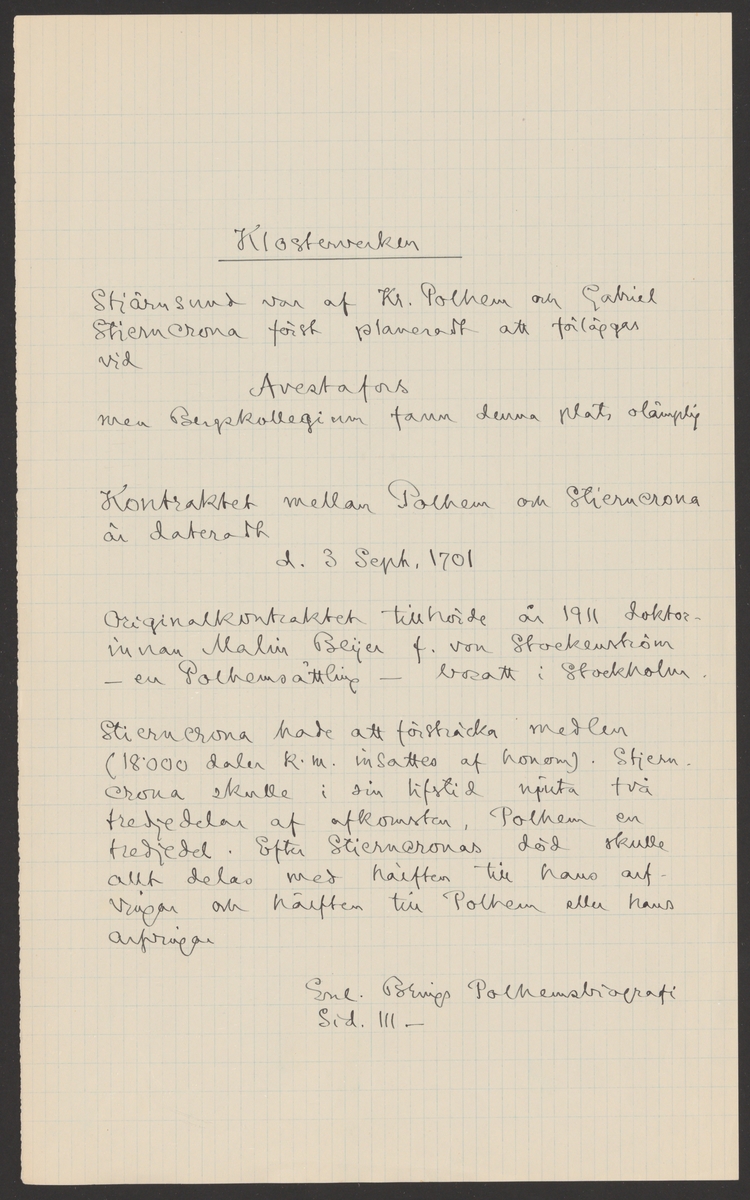 Klosterverken
Stjärnsund var af Kr. Polhem och Gabriel
Stierncrona först planeradt att förläggas
vid
Avestafors
men Bergskollegium fann denna plats olämplig
Kontraktet mellan Polhem och Stierncrona
är dateradt
d. 3 Sept. 1701
Originalkontraktet tillhörde år 1911 doktor-
innan Malin Beijer f. von Stockenström
— en Polhemsättling — bosatt i Stockholm.
Stierncrona hade att försträcka medlen
(18·000 daler k.m. insattes af honom). Stjern-
crona skulle i sin lifstid njuta två
tredjedelar af afkomsten, Polhem en
tredjedel. Efter Stierncronas död skulle
allt delas med hälften till hans arf-
vingar och hälften till Polhem eller hans
arfvingar
Enl. Brings Polhemsbiografi
Sid. 111 —